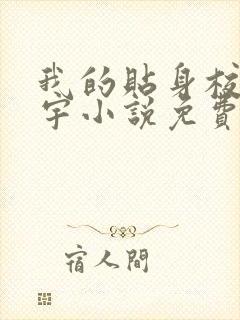 我的貼身校
宇小說免費
宿人間